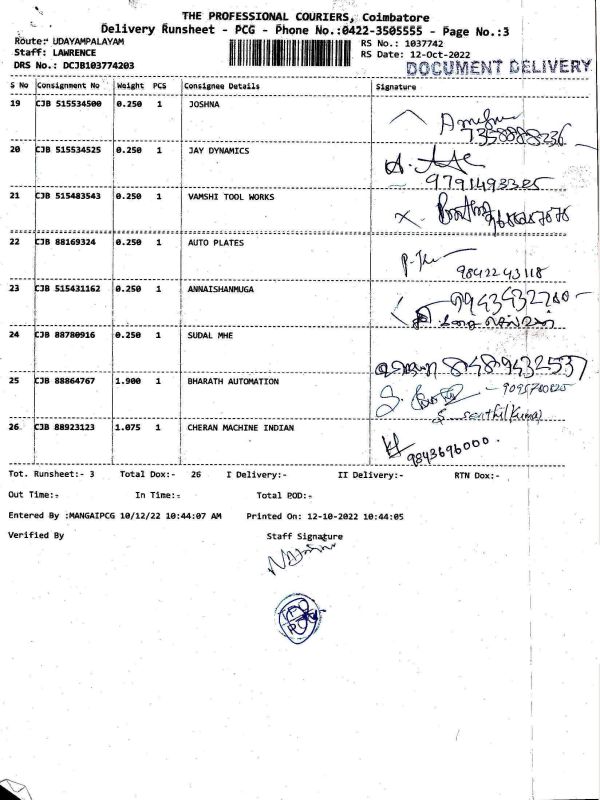 THE PROFESSIONAL COURIERS, Coimbatore
Delivery Runsheet - PCG - Phone No.:0422-3505555 - Page No.:3
Route: UDAYAMPALAYAM
RS No.: 1037742
Staff: LAWRENCE
RS Date: 12-Oct-2022
DRS No.: DCJB103774203
DOCUMENT DELIVERY
S No Consignment No Weight PCS Consignee Details Signature
19 CJB 515534500 0.250 1 JOSHNA
7358888236
20 CJB 515534525 0.250 1 JAY DYNAMICS
21 CJB 515483543 0.250 1 VAMSHI TOOL WORKS
22 CJB 88169324 0.250 1 AUTO PLATES
9842243118
23 CJB 515431162 0.250 1 ANNAISHANMUGA
24 CJB 88780916 0.250 1 SUDAL MHE
8489432537
25 CJB 88864767 1.900 1 BHARATH AUTOMATION
26 CJB 88923123 1.075 1 CHERAN MACHINE INDIAN
9843696000.
Tot. Runsheet:- 3 Total Dox:- 26 I Delivery:- II Delivery:- RTN Dox:-
Out Time:- In Time:- Total POD:-
Entered By :MANGAIPCG 10/12/22 10:44:07 AM Printed On: 12-10-2022 10:44:05
Verified By Staff Signature